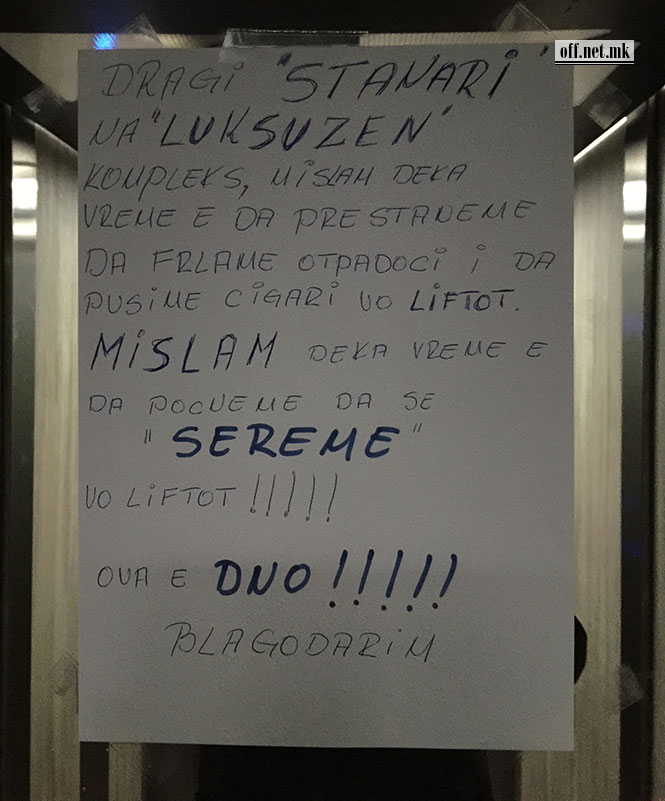 off.net.mk
DRAGI "STANARI"
NA "LUKSUZEN"
KOMPLEKS, MISLAM DEKA
VREME E DA PRESTANEME
DA FRLAME OTPADOCI I DA
PUSIME CIGARI VO LIFTOT.
MISLAM DEKA VREME E
DA POCNEME DA SE
"SEREME"
VO LIFTOT !!!!!
OVA E DNO !!!!!
BLAGODARIM